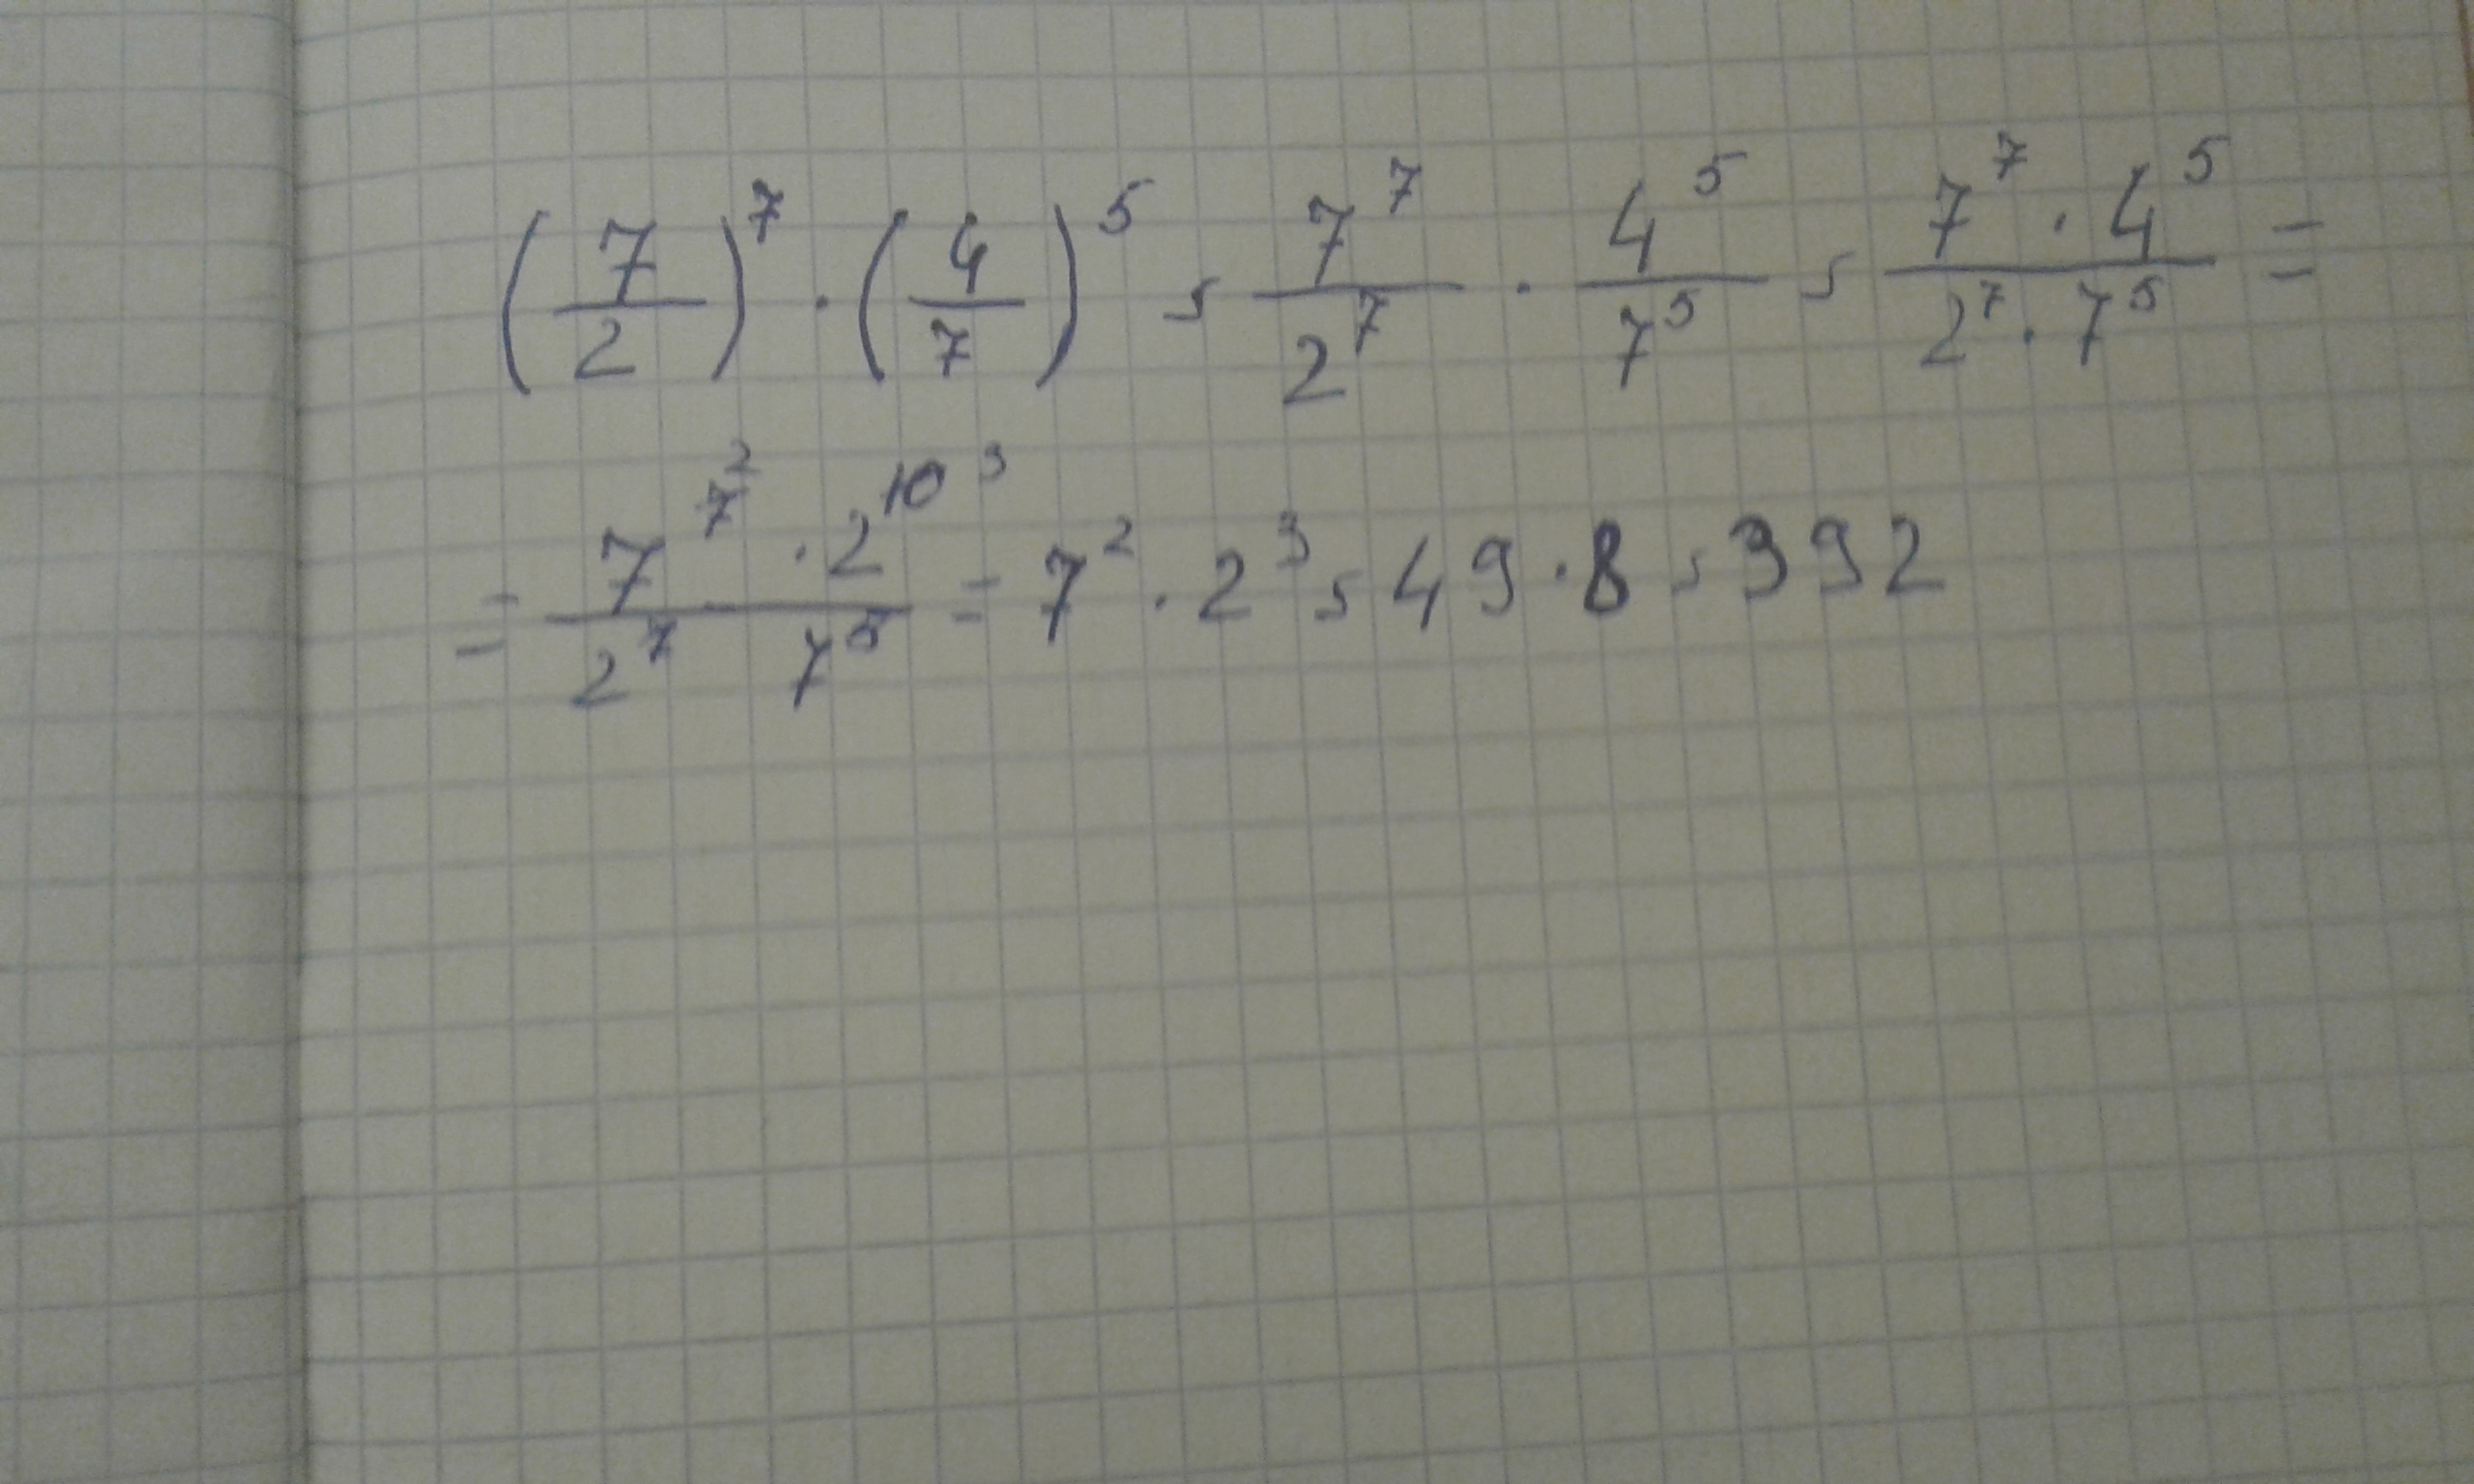 (7/2)^7 · (4/7)^5 = 7^7/2^7 · 4^5/7^5 = (7^7 · 4^5)/(2^7 · 7^5) =
= (7^7^2 · 2^10^3)/(2^7 7^5) = 7^2 · 2^3 = 49 · 8 = 392